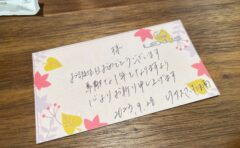 様
お誕生日おめでとうございます
素敵な1年となりますよう
心よりお祈り申し上げます
2023.9.